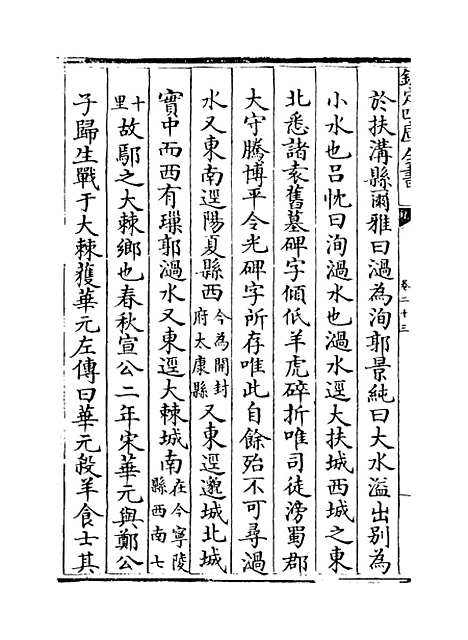 欽定四庫全書
卷二十三
於扶溝縣爾雅曰濄為洵郭景純曰大水溢出别為
小水也吕忱曰洵濄水也濄水逕大扶城西城之東
北悉諸袁舊墓碑字傾低羊虎碎折唯司徒滂蜀郡
大守騰博平令光碑字所存唯此自餘殆不可尋濄
水又東南逕陽夏縣西今為開封府太康縣又東逕邈城北城
實中而西有璅郭濄水又東逕大棘城南在今寧陵縣西南七
十里故鄢之大棘鄉也春秋宣公二年宋華元與鄭公
子歸生戰于大棘獲華元左傳曰華元殺羊食士其